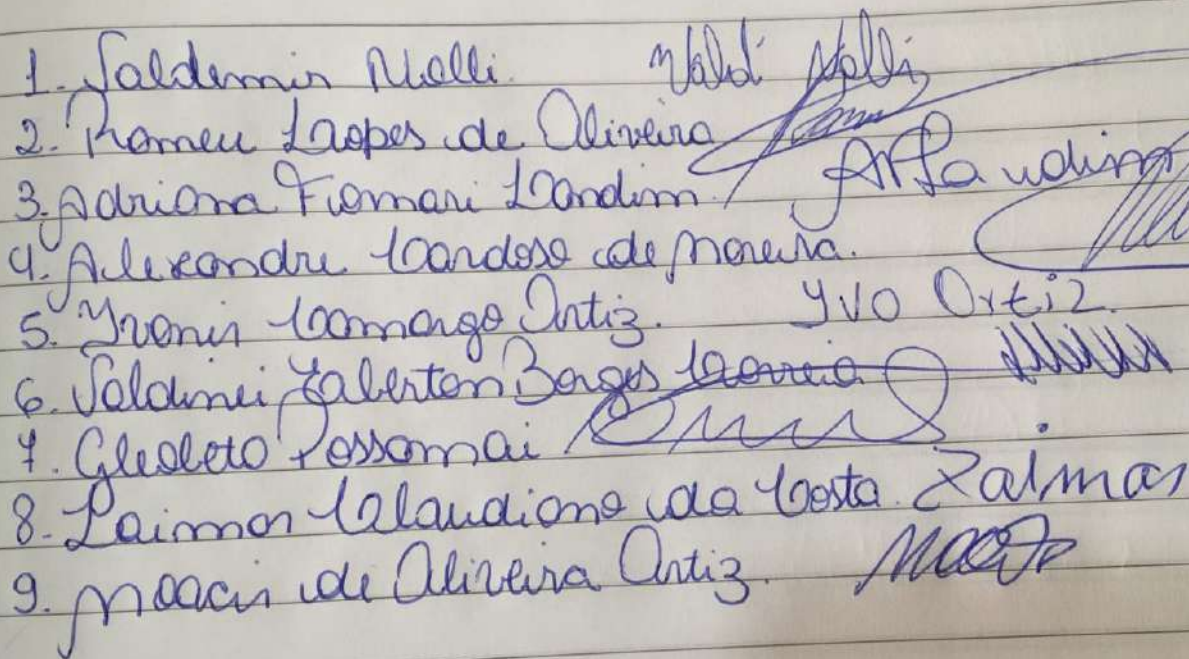 1. Valdemir Nolli. Valdi Nolli
2. Romeu Lopes de Oliveira
3. Adriana Fiomari Landim. AFLandim
4. Alexandre Cardoso de Moreira.
5. Yvonir Camargo Ortiz. YVO Ortiz.
6. Valdinei Borges Correia
7. Cleoleto Possamai
8. Claudiano da Costa. Zalmar
9. Moacir de Oliveira Ortiz.